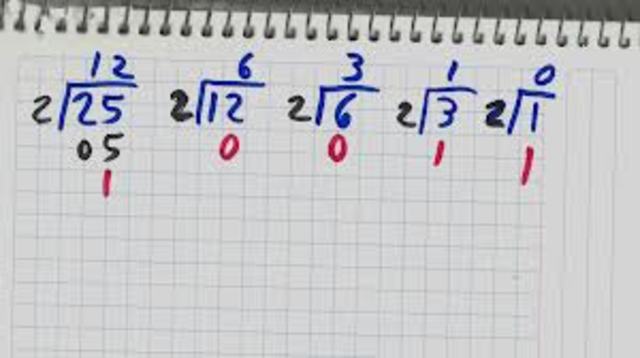 12 6 3 1 0
2 25 2 12 2 6 2 3 2 1
05 0 0 1 1
1